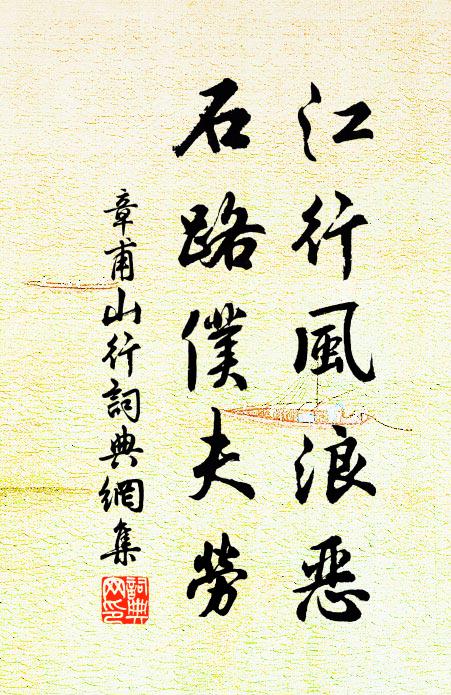 江行風浪惡
石路僕夫勞
章甫山行詞典網集
詞典網印